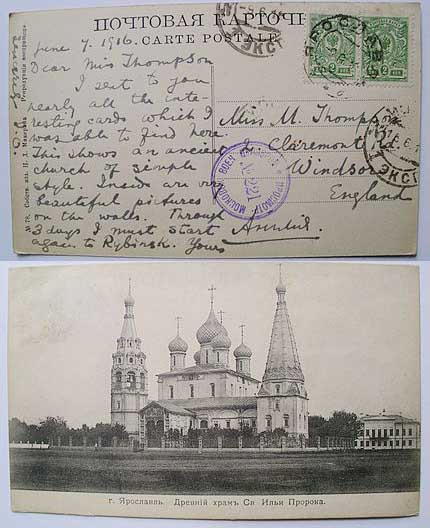 ПОЧТОВАЯ КАРТОЧКА
CARTE POSTALE
June 7. 1916.
Dear Miss Thompson
I sent to you
nearly all the inte-
resting cards which I
was able to find here.
This shows an ancient
church of simple
style. Inside are very
beautiful pictures
on the walls. Through
3 days I must start
again to Rybinsk. Yours
Miss M. Thompson
Claremont Rd.
Windsor
England
№ 221
г. Ярославль. Древній храмъ Св. Ильи Пророка.